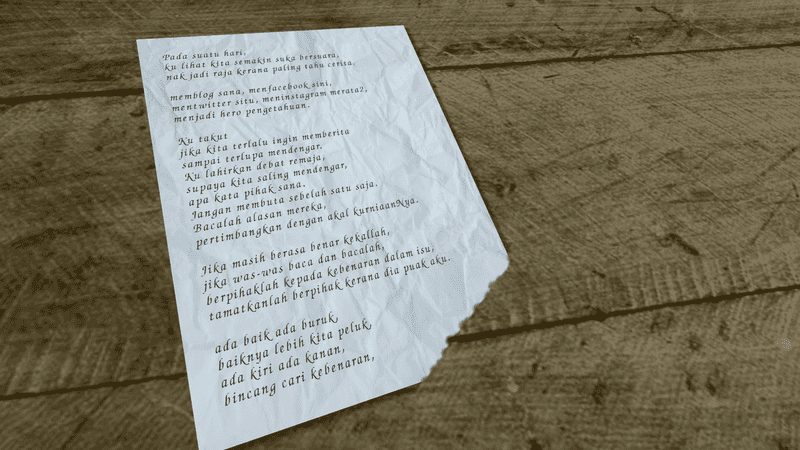 Pada suatu hari,
ku lihat kita semakin suka bersuara,
nak jadi raja kerana paling tahu cerita.
memblog sana, menfacebook sini,
mentwitter situ, meninstagram merata2,
menjadi hero pengetahuan.
Ku takut
jika kita terlalu ingin memberita
sampai terlupa mendengar.
Ku lahirkan debat remaja,
supaya kita saling mendengar,
apa kata pihak sana.
Jangan membuta sebelah satu saja.
Bacalah alasan mereka,
pertimbangkan dengan akal kurniaanNya.
Jika masih berasa benar kekallah,
jika was-was baca dan bacalah,
berpihaklah kepada kebenaran dalam isu,
tamatkanlah berpihak kerana dia puak aku.
ada baik ada buruk,
baiknya lebih kita peluk,
ada kiri ada kanan,
bincang cari kebenaran,